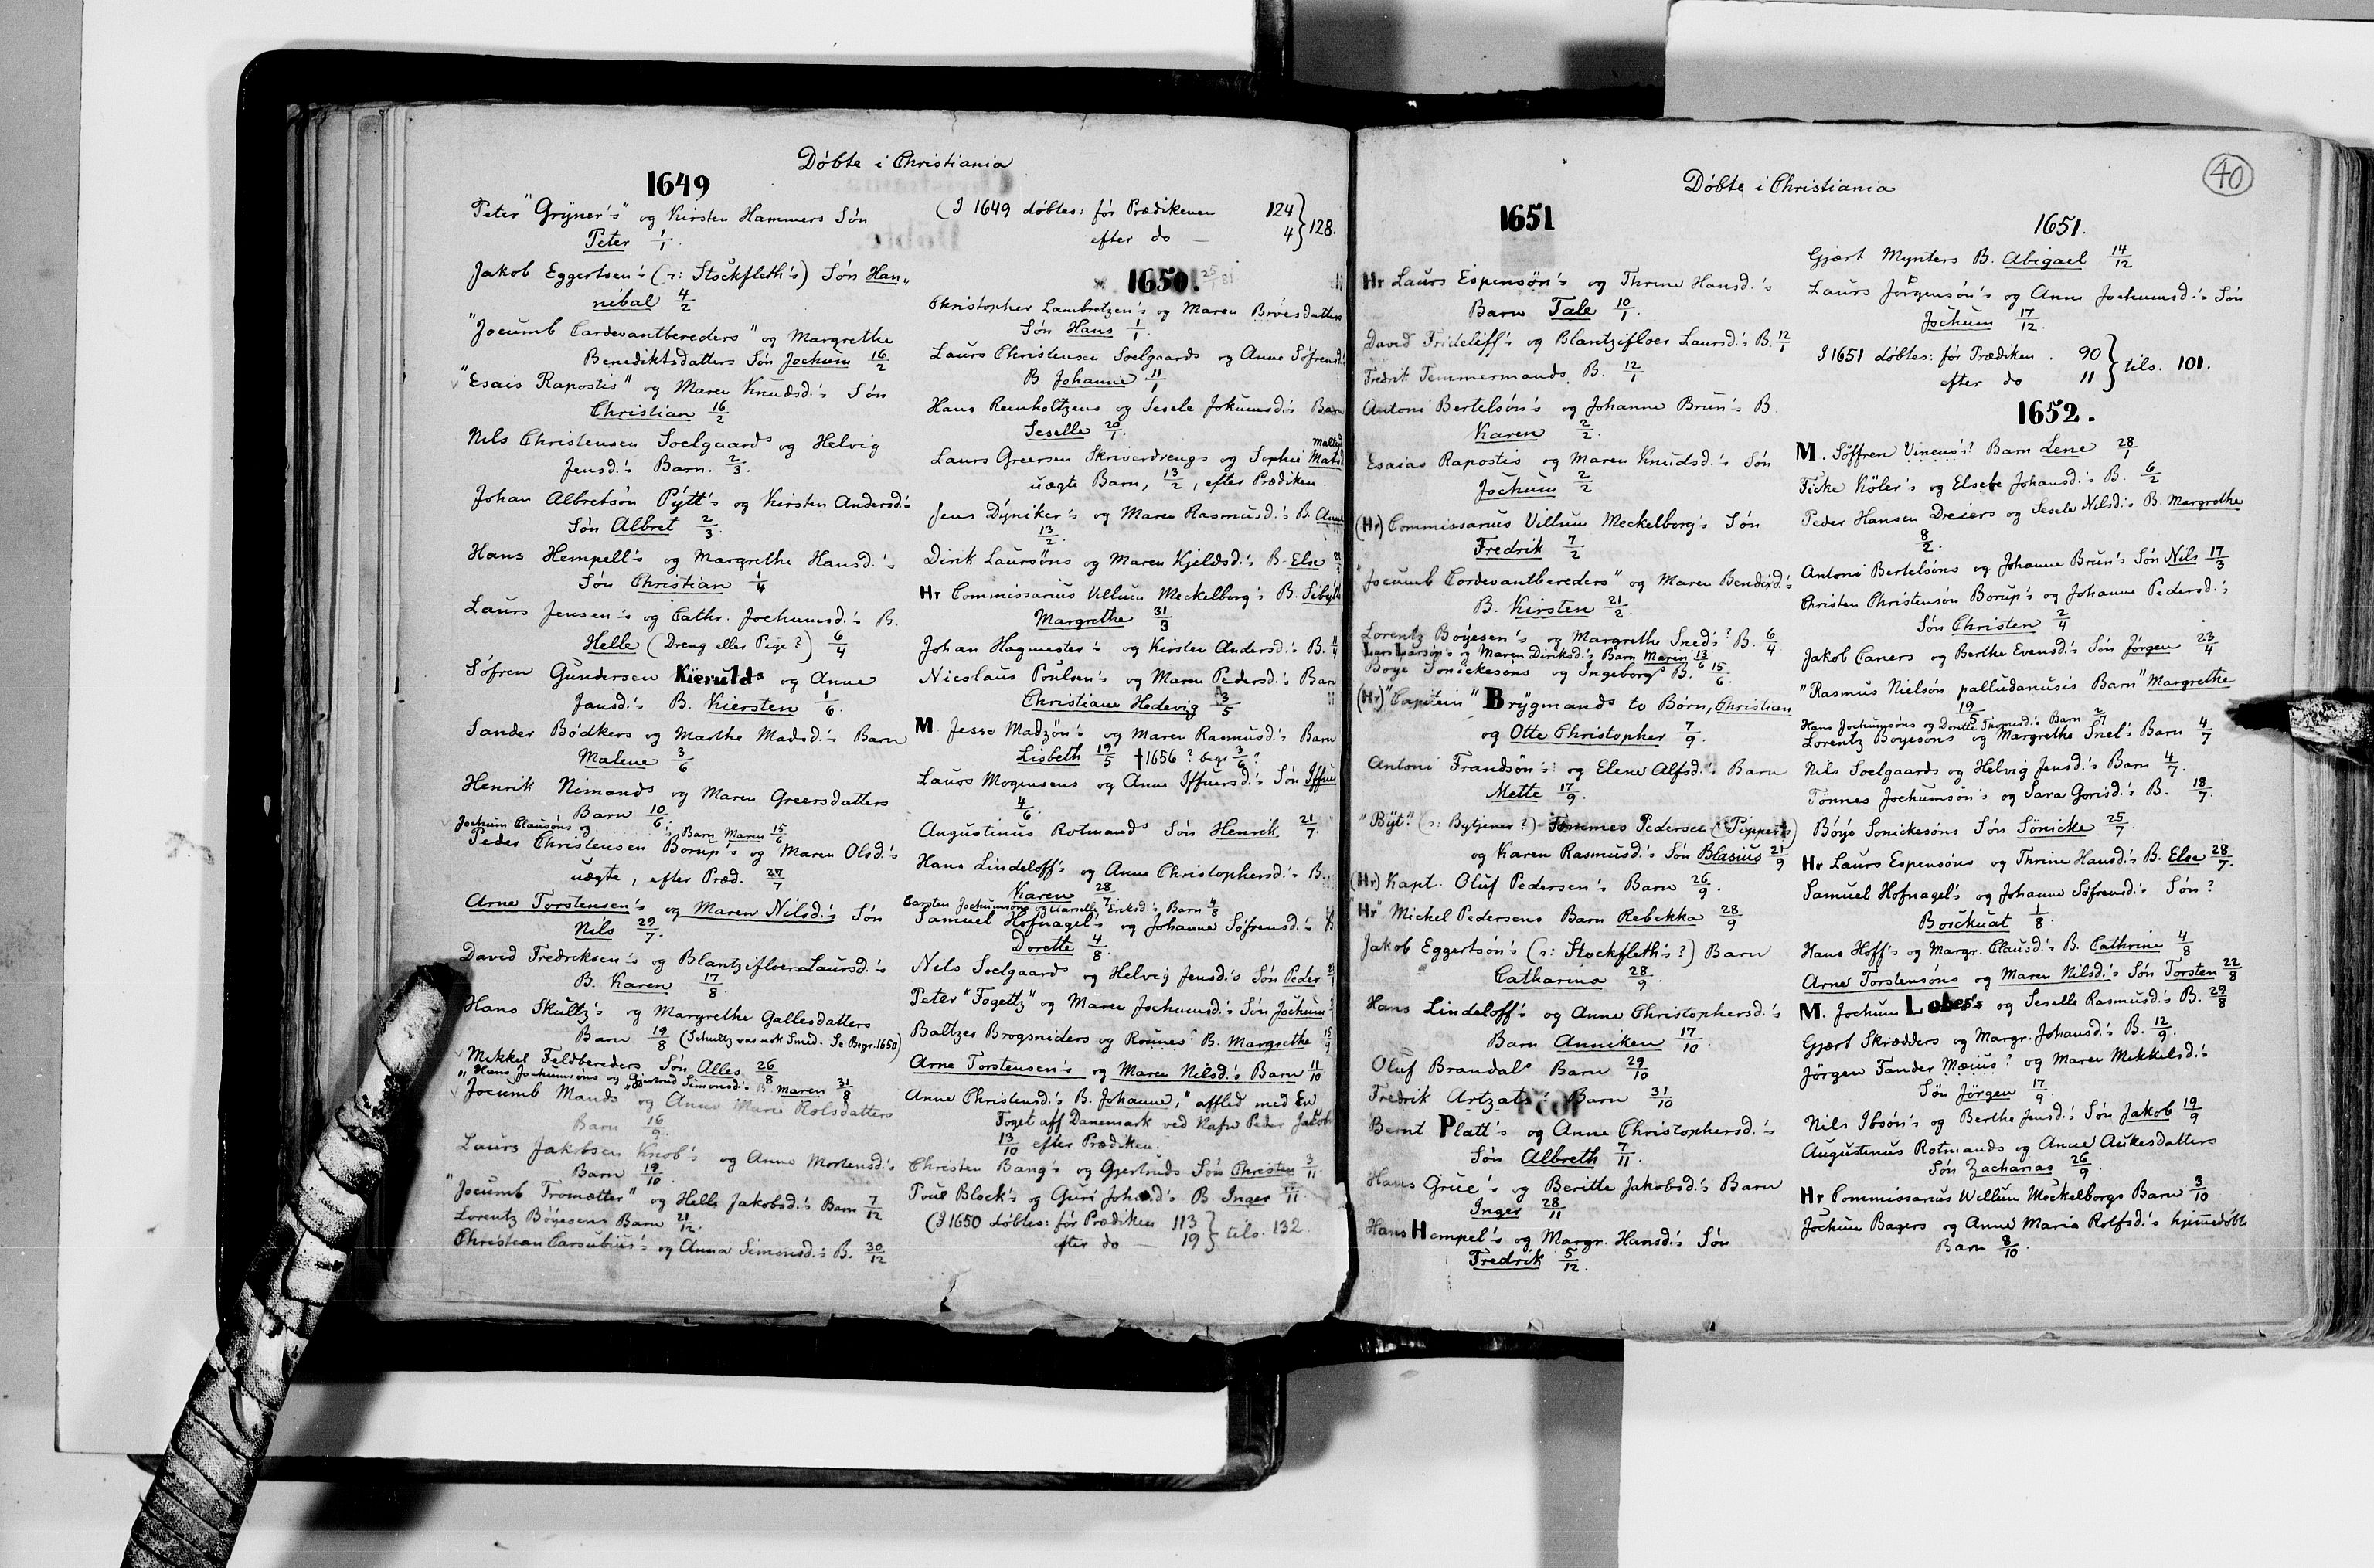 Döbte i Christiania
1649
Peter "Grÿner's" og Kirsten Hammers Sön
Peter 1/1.
Jakob Eggertsen's (ɔ: Stockfleth's) Sön Han„
nibal 4/2
"Jocumb Cardevantbereders" og Margrethe
Benediktsdatters Sön Jochum 16/2
"Esais Rapostis" og Maren Knudsd.'s Sön
Christian 16/2
Nils Christensen Soelgaards og Helvig
Jensd.'s Barn. 2/3.
Johan Albretsön Pÿtt's og Kirsten Andersd.'s
Sön Albret 2/3.
Hans Hempell's og Margrethe Hansd.'s
Sön Christian 1/4
Laurs Jensen's og Cathr. Jochumsd.'s B.
Helle (Dreng eller Pige?) 6/4
Söfren Gundersen Kierulds og Anne
Jansd.'s B. Kiersten 1/6.
Sander Bödkers og Marthe Madsd.'s Barn
Malene 3/6
Henrik Nimands og Maren Greersdatters
Barn 10/6.
Jochum Clausöns og Barn Maren 15/6
Peder Christensen Borup's og Maren Olsd.'s
uægte, efter Præd. 27/7
Arne Torstensen's og Maren Nilsd.'s Sön
Nils 29/7.
David Fredriksen's og Blantzifloer Laursd.'s
B. Karen 17/8.
Hans Skultz's og Margrethe Gallesdatters
Barn 19/8 (Schultz var nok Smed. Se Begr. 1650)
Mikkel Feldbereders Sön Alles 26/8
"Hans Jochumsöns og Gjertrud Simonsd.'s B Maren 31/8
Jocumb Mands og Anne Marie Rolsdatters
Barn 16/9.
Laurs Jakobsen Knob's og Anne Mortensd.'s
Barn 19/10.
"Jocumb Trometter" og Helle Jakobsd.'s Barn 7/12
Lorentz Böyesens Barn 21/12.
Christean Carsubius's og Anna Simonsd.'s B. 30/12
(I 1649 döbtes: för Prædikenen 124
efter do — 4 } 128.
1650.
Christopher Lambretzen's og Maren Bröersdatters
Sön Hans 1/1
Laurs Christensen Soelgaards og Anne Söfrensd.
B. Johanne 11/1
Hans Reinholtzens og Sesele Jokumsd.'s Barn
Seselle 20/1.
Laurs Greersen Skriverdrengs og Sophie Mats
uægte Barn, 13/2, efter Prædiken.
Jens Dÿniker's og Maren Rasmusd.'s B. Anne
13/2.
Dirik Laursöns og Maren Kjeldsd.'s B. Else
Hr Commissarius Villum Meckelborg's B. Sibÿlle
Margrethe 31/3
Johan Hagmester's og Kirsten Andersd.'s B.
Nicolaus Poulsen's og Maren Pedersd.'s Barn
Christiane Hedevig 3/5
M. Jesse Madzön's og Maren Rasmusd.'s Barn
Lisbeth 19/5 †1656? begr. 3/6?
Laurs Mogensens og Anne Iffuersd.'s Sön Iffuer
4/6.
Augustinus Rotmands Sön Henrik 21/7.
Hans Lindeloff's og Anne Christophersd.'s B.
Karen 28/7
Carsten Jochumsöns og Karselle Eriksd.'s Barn 4/8
Samuel Hofnagel's og Johanne Söfrensd.'s B
Dorette 4/8.
Nils Soelgaards og Helvig Jensd.'s Sön Peder
Peter "Fogettz" og Maren Jochumsd.'s Sön Jochum
Baltzer Brogsniders og Rönnes? B. Margrethe 15/9
Arne Torstensen's og Maren Nilsd.'s Barn 11/10
Anne Christensd.'s B. Johanne, "afled med En
Foget aff Danemark ved Nafn Peder Jakob
13/10 efter Prædiken.
Christen Bang's og Gjertruds Sön Christen 3/11
Poul Block's og Guri Johsd.'s B Inger
(I 1650 döbtes: för Prædiken 113
efter do — 19 } tils. 132.
40
Döbte i Christiania
1651
Hr Laurs Espensön's og Thrine Hansd.'s
Barn Tale 10/1.
David Frideliff's og Blantzifloer Laursd.'s B. 12/1
Fredrik Temmermands B. 12/1
Antoni Bertelsön's og Johanne Brun's B.
Karen 2/2.
Esaias Rapostis og Maren Knudsd.'s Sön
Jochum 2/2
(Hr) Commissarius Villum Meckelborg's Sön
Fredrik 7/2
"Jocumb Cordevantbereders" og Maren Bendixd.'s
B. Kirsten 21/2.
Lorentz Boyesen's og Margrethe Sned's? B. 6/4
Lars Larsön's og Maren Diriksd.'s Barn Maren 13/6
Boye Sönickesöns og Ingeborgs B. 15/6.
(Hr) "Capitein" Brÿgmands to Börn, Christian
og Otte Christopher 7/9.
Antoni Frandsön's og Elene Alfsd.'s Barn
Mette 17/9.
"Bÿt." (ɔ: Bytjener?) Tommes Pedersen (Pippert's)
og Karen Rasmusd.'s Sön Blasius 21/9
(Hr) Kapt. Oluf Pedersen's Barn 26/9.
"Hr" Mickel Pedersens Barn Rebekka 28/9
Jakob Eggertsön's (ɔ: Stockfleth's?) Barn
Catharina 28/9.
Hans Lindeloff's og Anne Christophersd.'s
Barn Anniken 17/10.
Oluf Brandals Barn 29/10
Fredrik Artzats? Barn 31/10
Bernt Platt's og Anne Christophersd.'s
Sön Albreth 7/11.
Hans Grue's og Beritte Jakobsd.'s Barn
Inger 28/11
Hans Hempel's og Margr. Hansd.'s Sön
Fredrik 5/12.
1651.
Gjært Mynters B. Abigael 14/12
Laurs Jörgensön's og Anne Jochumsd.'s Sön
Jochum 17/12.
I 1651 döbtes: för Prædiken . 90
efter do 11 } tils. 101.
1652.
M. Söffren Vineus's? Barn Lene 28/1
Ficke Köler's og Elsebe Johansd.'s B. 6/2
Peder Hansen Dreiers og Sesele Nilsd.'s B. Margrethe
8/2.
Antoni Bertelsöns og Johanne Brun's Sön Nils 17/3
Christen Christensön Borup's og Johanne Pedersd.'s
Sön Christen 2/4
Jakob Caners og Berthe Evensd.'s Sön Jörgen 23/4
"Rasmus Nielsön palludanusis Barn" Margrethe
19/5
Hans Jochumsöns og Dorete Thomsd.'s Barn 2/7
Lorentz Boyesöns og Margrethe Snel's Barn 4/7
Nils Soelgaards og Helvig Jensd.'s Barn 4/7.
Tönnes Jochumsön's og Sara Gorisd.'s B. 18/7.
Böyö Sonickesöns Sön Sönicke 25/7
Hr Laurs Espensöns og Thrine Hansd.'s B. Else 28/7.
Samuel Hofnagel's og Johanne Söfrensd.'s Sön?
Boickuat 1/8.
Hans Hoff's og Margr. Clausd.'s B. Cathrine 4/8
Arne Torstensöns og Maren Nilsd.'s Sön Torsten 22/8
M. Jochum Lobes's og Seselle Rasmusd.'s B. 29/8
Gjært Skrædders og Margr. Johansd.'s B. 12/9.
Jörgen Fander Mæius? og Maren Mekkelsd.'s
Sön Jörgen 17/9.
Nils Ibsön's og Berthe Jensd.'s Sön Jakob 19/9
Augustinus Rotmands og Anne Aukesdatters
Sön Zacharias 26/9.
Hr Commissarius Willum Meckelborgs Barn 3/10
Jochum Bagers og Anne Maria Rolfsd.'s hjemmedöbte
Barn 8/10.